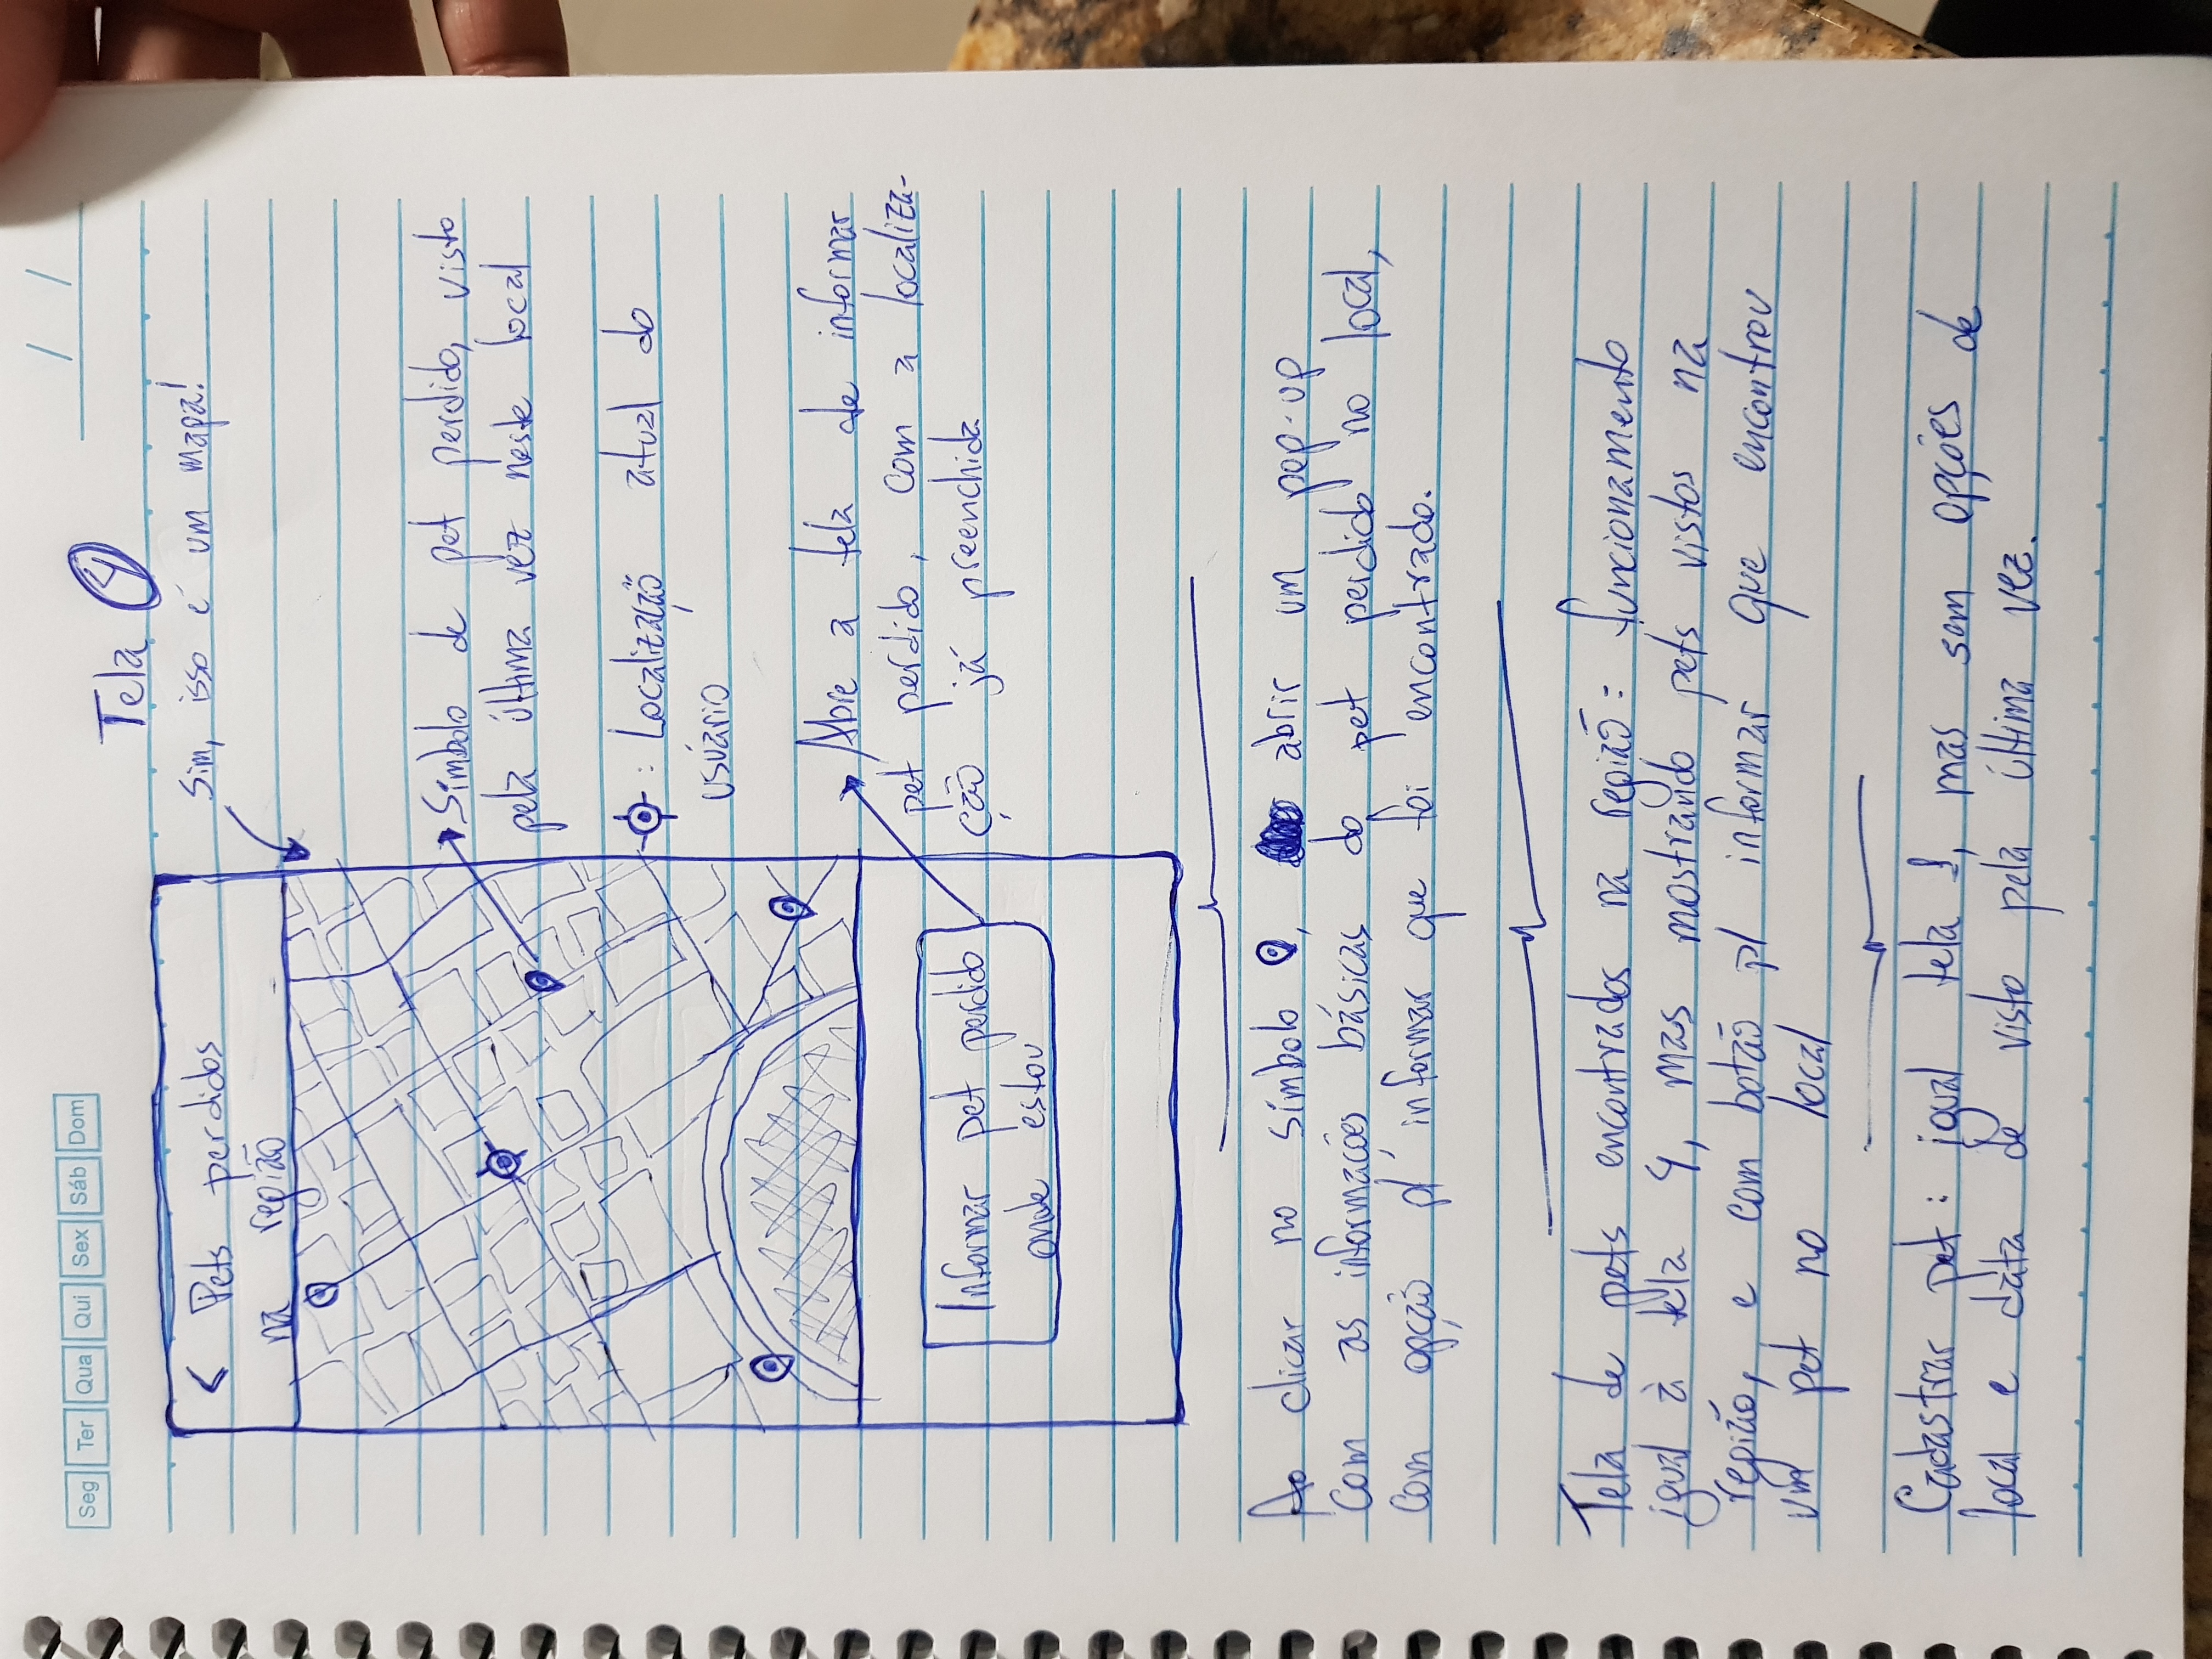 Seg Ter Qua Qui Sex Sáb Dom
/ /
Tela 4
Sim, isso é um mapa!
< Pets perdidos
na região
Símbolo de pet perdido, visto
pela última vez neste local
: Localização atual do
usuário
Abre a tela de informar
pet perdido, com a localiza-
ção já preenchida
Informar pet perdido
onde estou
Ao clicar no símbolo , abrir um pop-up
com as informações básicas do pet perdido no local,
com opção p/ informar que foi encontrado.
Tela de pets encontrados na região: funcionamento
igual à tela 4, mas mostrando pets vistos na
região, e com botão p/ informar que encontrou
um pet no local
Cadastrar pet: igual tela 1, mas sem opções de
local e data de visto pela última vez.